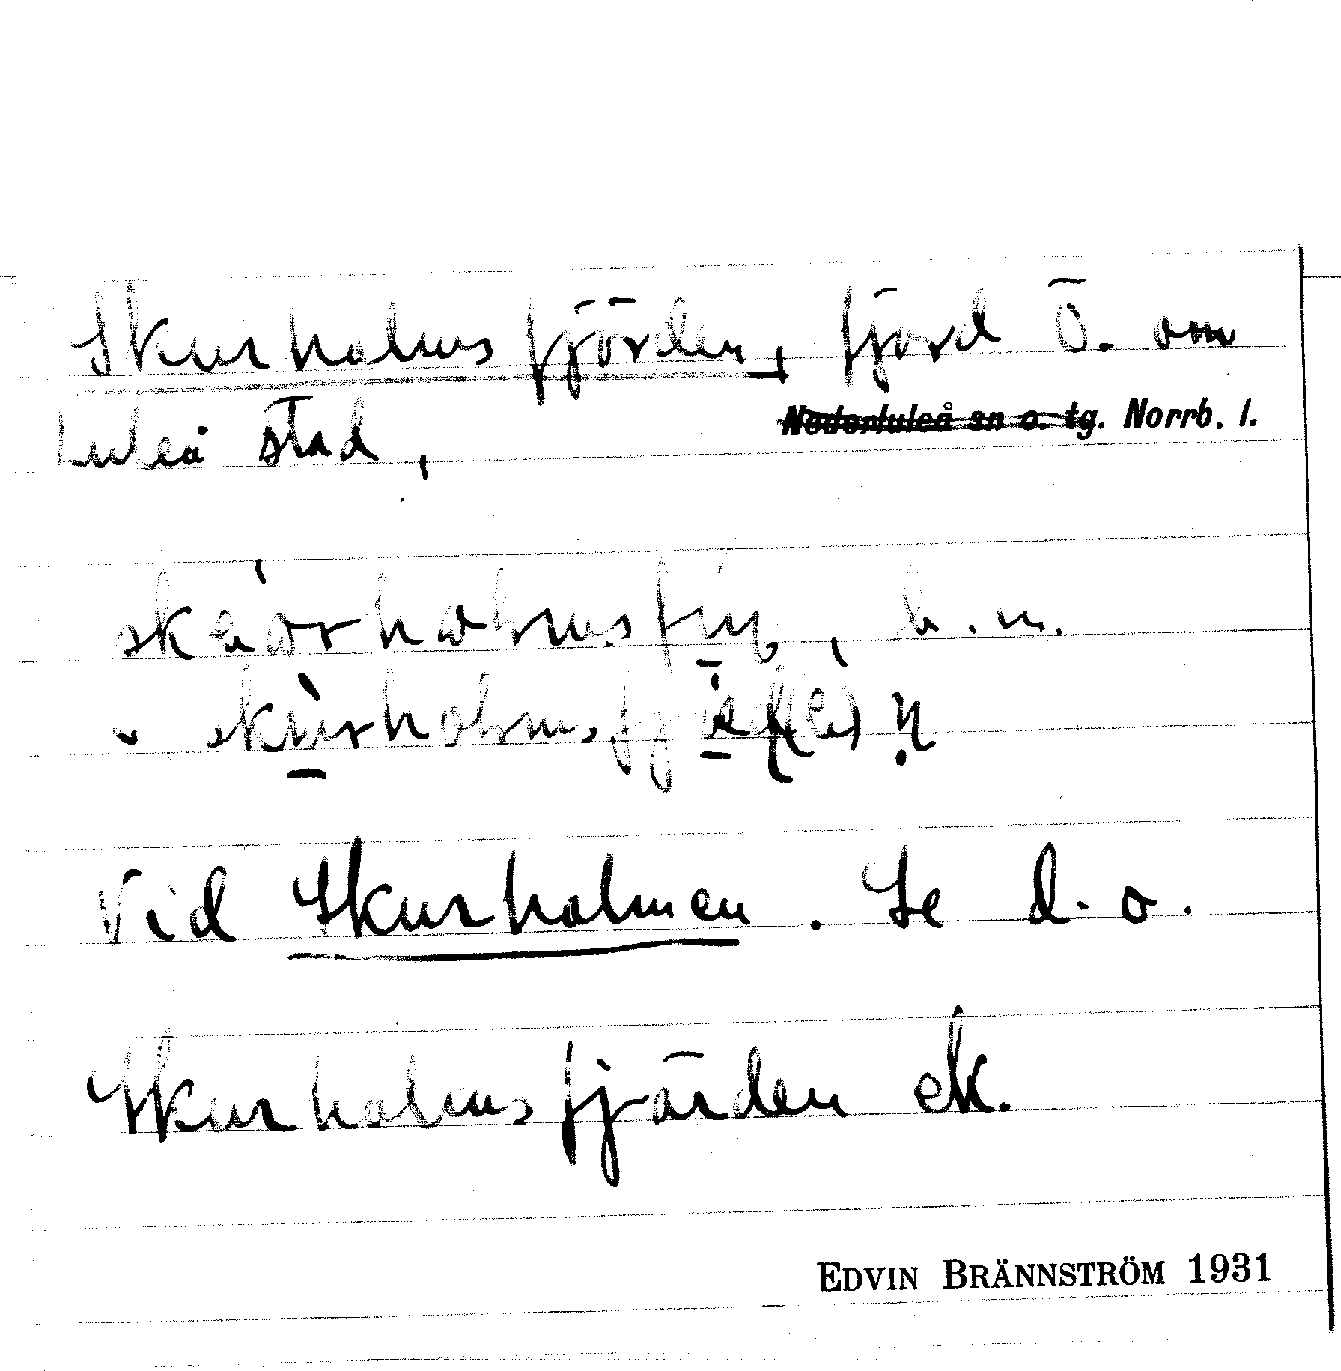 Skurholmsfjärden, fjärd Ö. om
Luleå stad, Nederluleå sn o. tg. Norrb. l.
b. m.
Vid Skurholmen. Se d. o.
Skurholmsfjärden ek.
EDVIN BRÄNNSTRÖM 1931